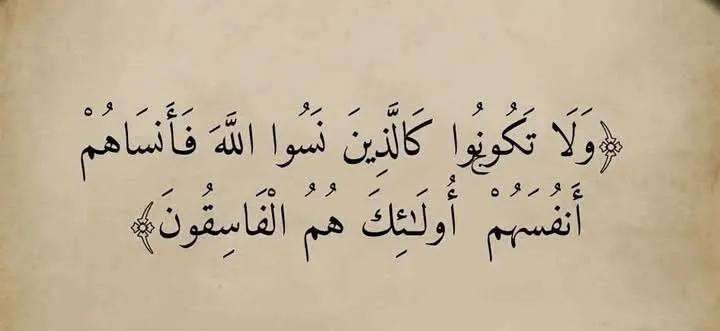 ﴿وَلَا تَكُونُوا كَالَّذِينَ نَسُوا اللَّهَ فَأَنسَاهُمْ
أَنفُسَهُمْ ۚ أُولَـٰئِكَ هُمُ الْفَاسِقُونَ﴾